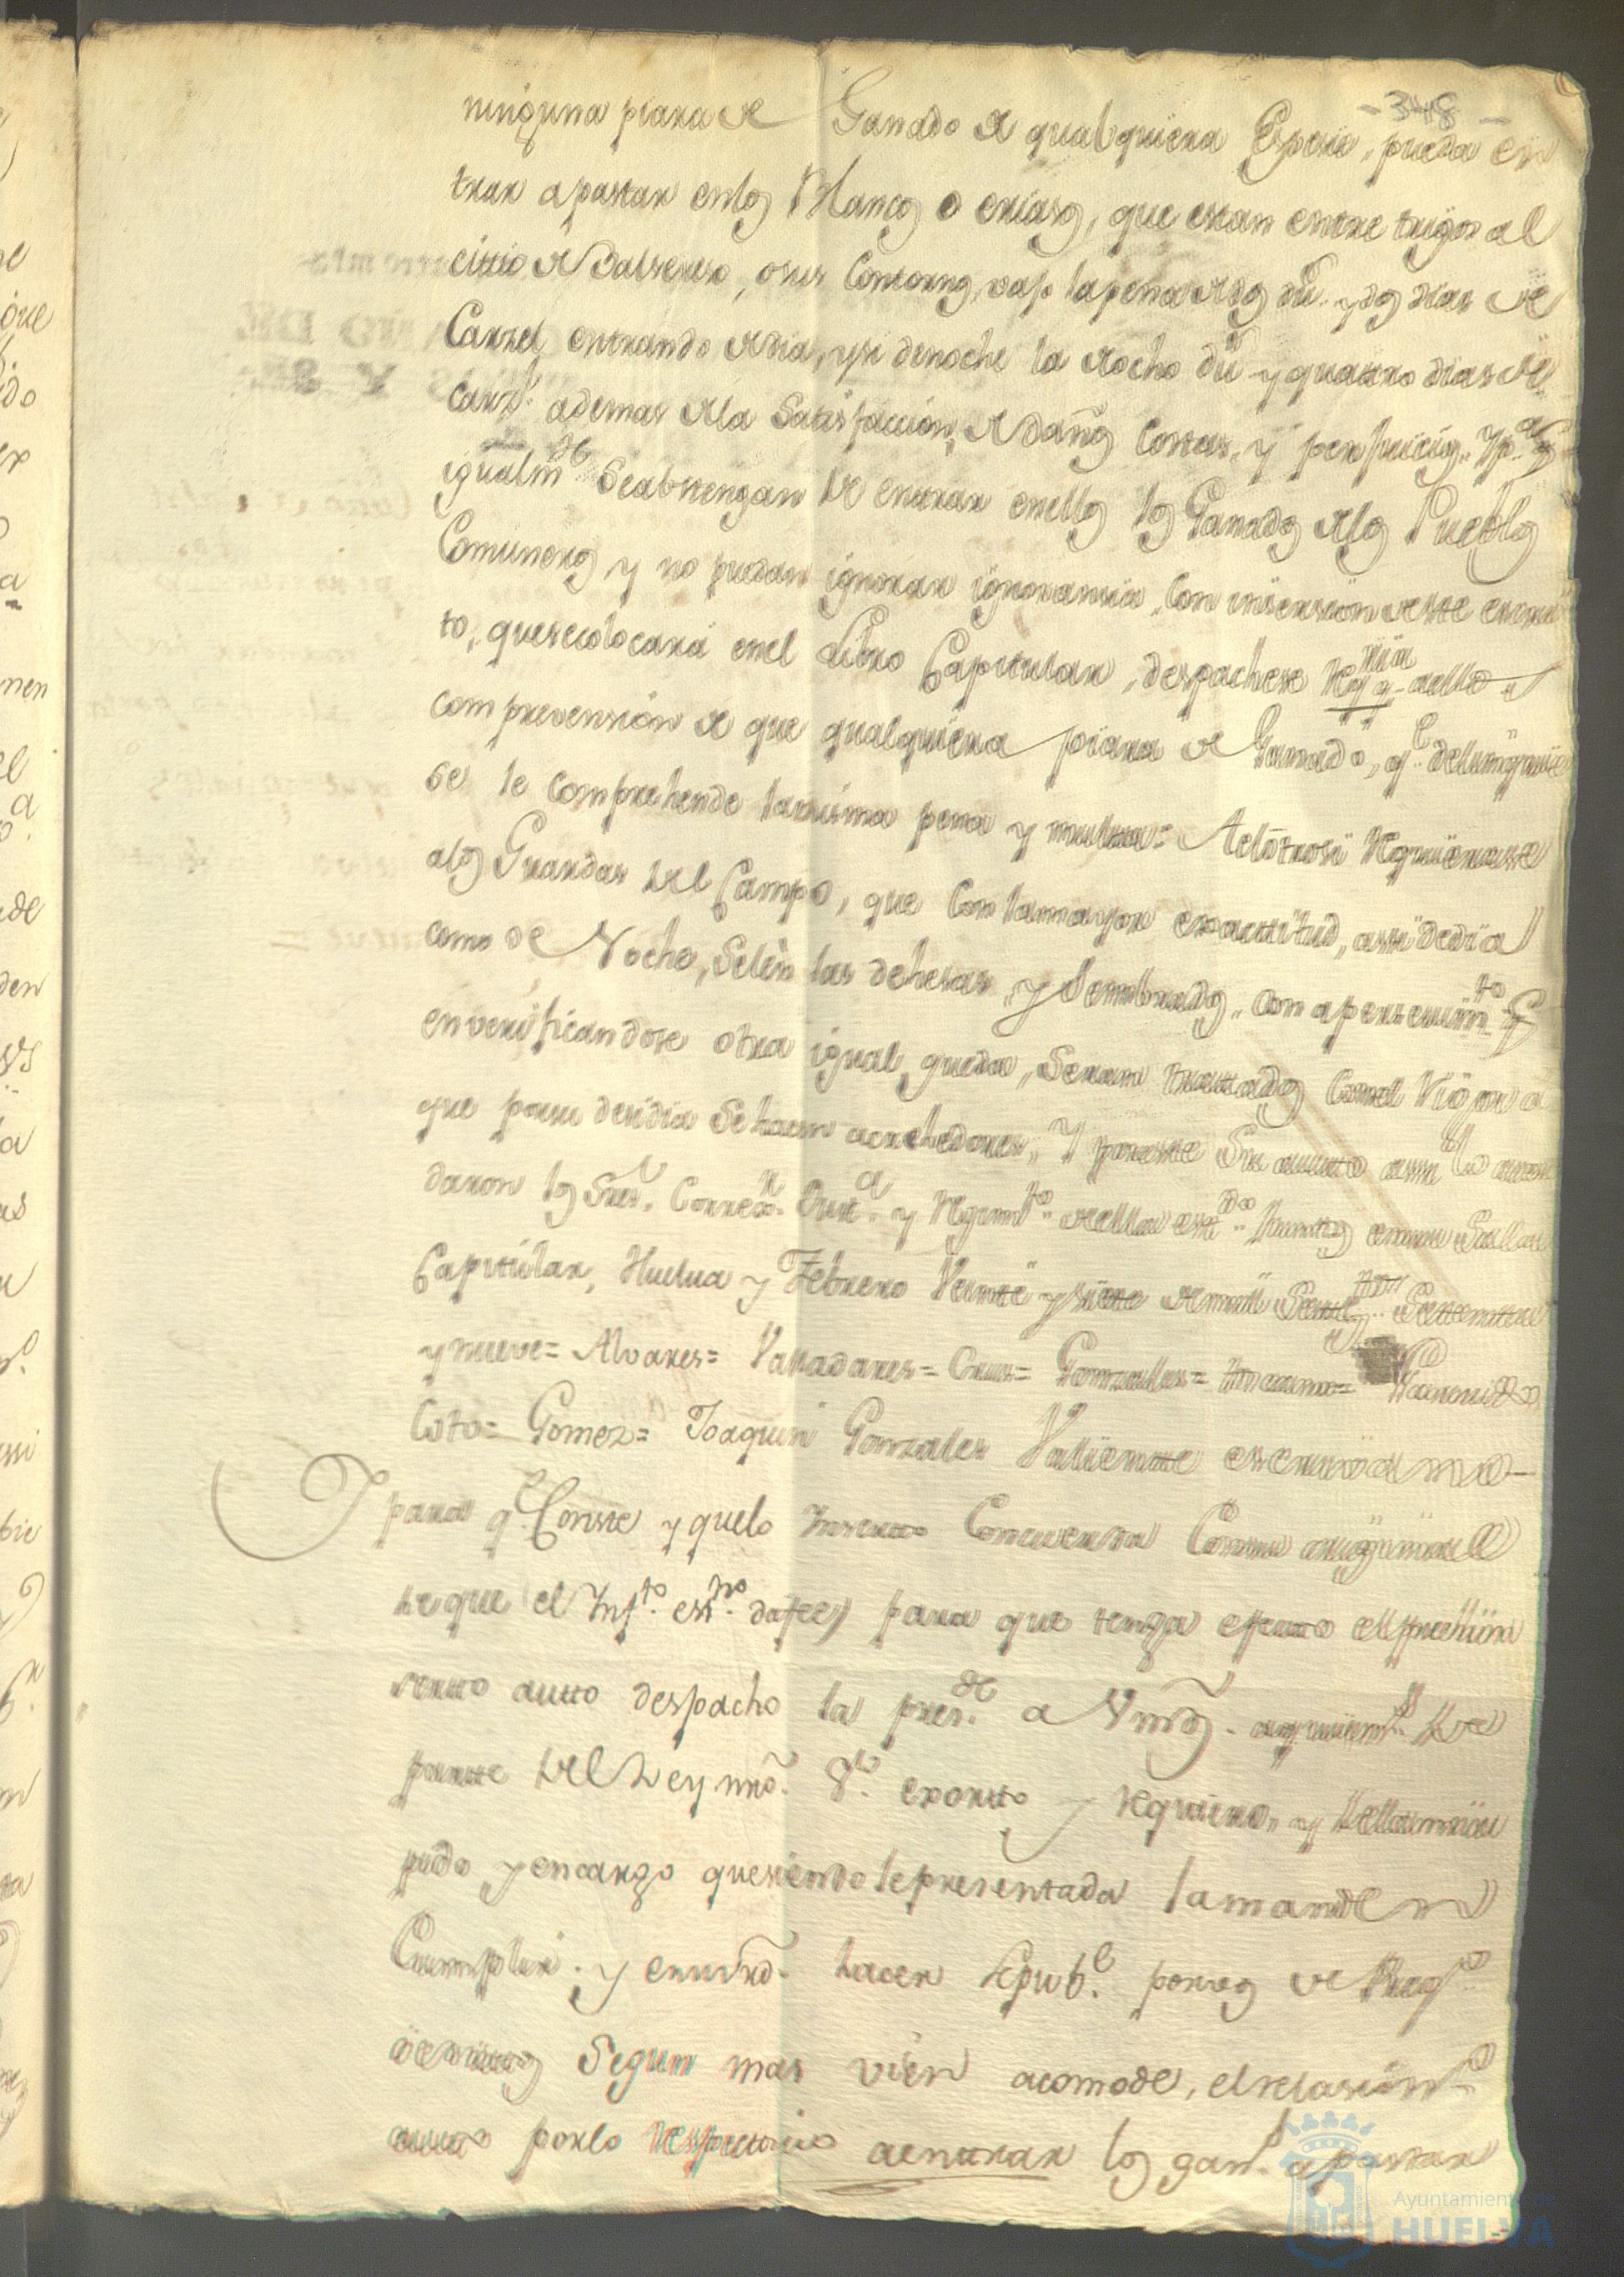 -348-
ninguna piara de Ganado de qualquiera Espesie, pueda en
trar apastar enlos Mancos o eriasos, que estan entre trigos al
cittio de Valsequero, o sus Contornos, vajo lapena de dos du.s y dos dias de
Carzel entrando de dia, y si denoche la de ocho du.s y quattro dias de
carz.l ademas de la Satisfaccion, de daños Costas, y perjuicios, Yp.a q
igualm.te Seabstengan de entrar enellos los Ganados de los Pueblos
Comuneros y no puedan ignorar ignoransia, Con insersion deste escrip
to, quesecolocará enel Libro Capitular, despachese req.ria aello
com prevension de que qualquiera piara de Ganado, q.e delinquie
se le comprehende lamisma pena y multta= Aelótrosi requierase
alos Guardas del Campo, que Con lamayor exacttitud, assi dedia
como de Noche, Selen las dehesas, y Sembrados, con apersevim.to q
enverificandose otra igual queda, Seran trattados Conel Vigor a
que porsu desidia Sehacen acrehedores, Y poreste Su autto assi lo acor
daron los Sres. Correx.r Just.a y Regim.to della est.do Junttos ensu Sala
Capittular, Huelva y Febrero Veintte y siette demill Settes.tos Settentta
y nueve= Alvares= Valladares= Crus= Gonzales=
Coto= Gomez= Joaquin Gonzales Valientte escrivano—
Y para q.e Conste y quelo Insertto Concuerda Consu origginal
de que el Inf.to ess.no dafee) para que tenga efectto elpreinn
sertto autto despacho la pres.te a Vmds. aquienes de
partte del Rey nro. S.r exortto y requiero, y dellamia
pido y encargo quesiendolepresentada lamanden
Cumplir. y ensuvrd. hacer Sepub.e porvos de Preg.o
o edicttos Segun mas vien acomode, elrelasion.do
autto porlo respecttivo aentrar los gan.s apastar
Ayuntamiento de
HUELVA